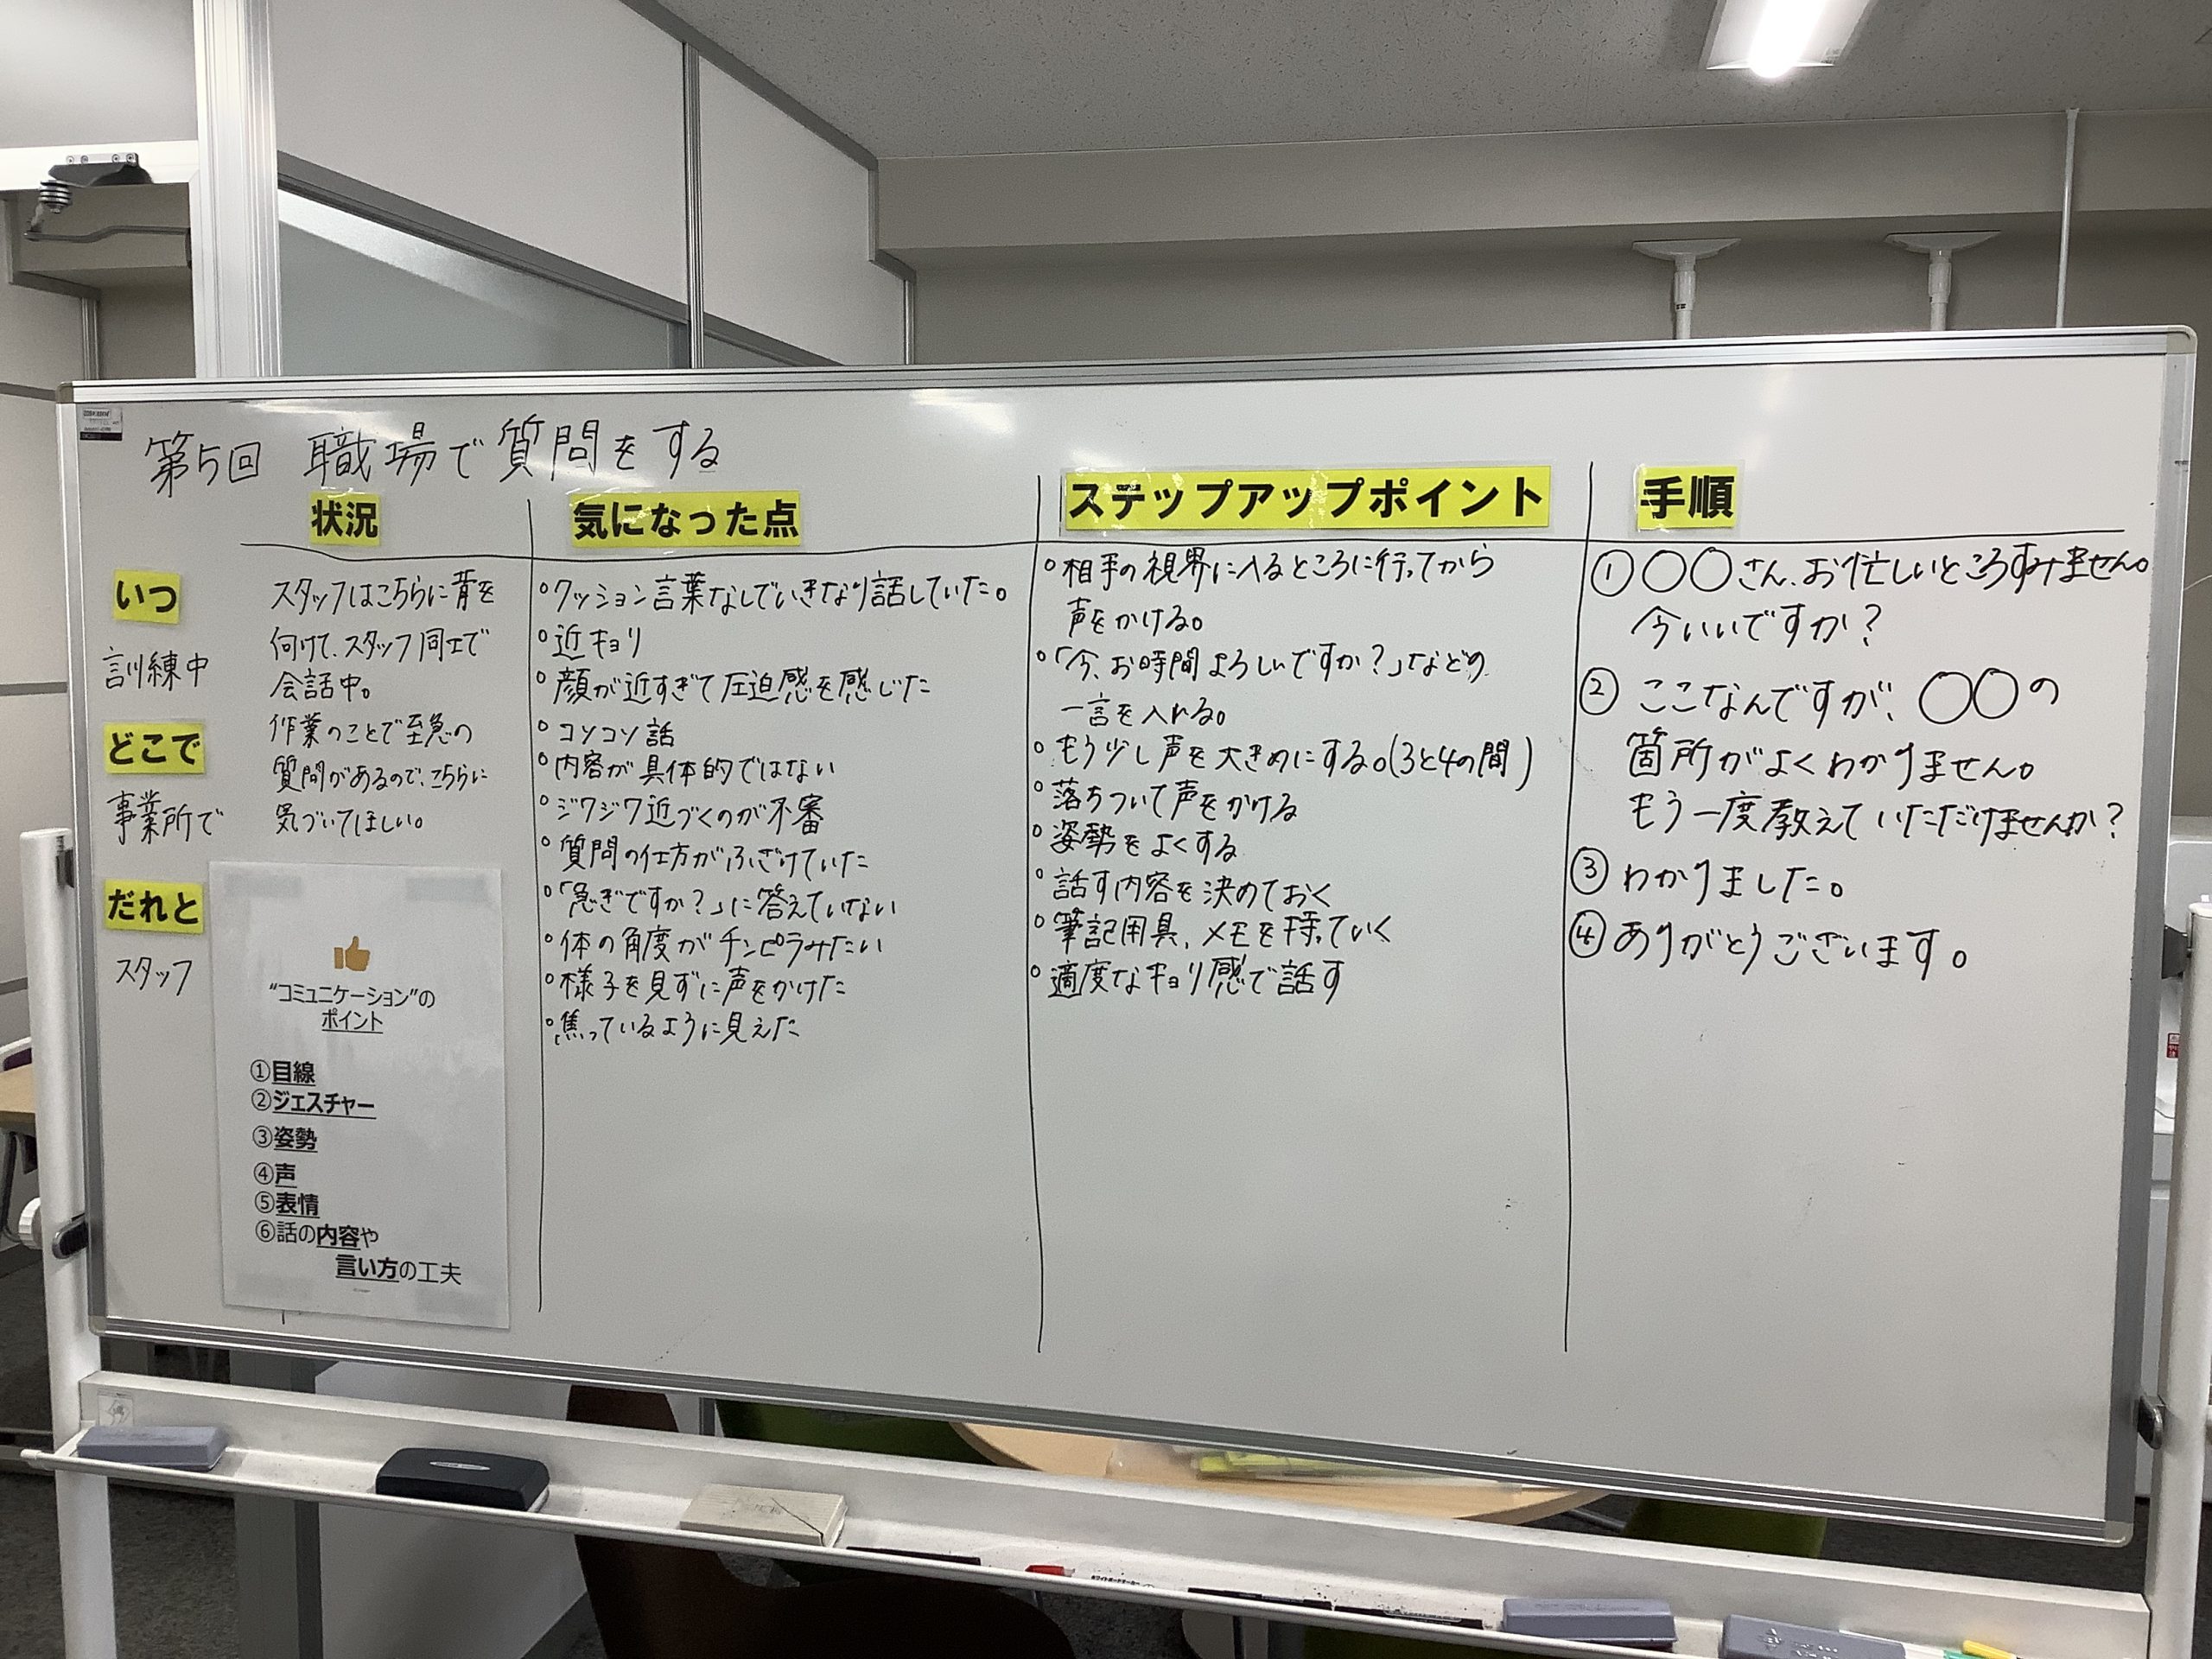 第5回 職場で質問をする
状況
いつ
訓練中
どこで
事業所で
だれと
スタッフ
スタッフはこちらに背を
向けて、スタッフ同士で
会話中。
作業のことで至急の
質問があるので、こちらに
気づいてほしい。
“コミュニケーション”の
ポイント
①目線
②ジェスチャー
③姿勢
④声
⑤表情
⑥話の内容や
言い方の工夫
気になった点
○クッション言葉なしでいきなり話していた。
○近キョリ
○顔が近すぎて圧迫感を感じた
○コソコソ話
○内容が具体的ではない
○ジワジワ近づくのが不審
○質問の仕方がふざけていた
○「急ぎですか?」に答えていない
○体の角度がチンピラみたい
○様子を見ずに声をかけた
○焦っているように見えた
ステップアップポイント
○相手の視界に入るところに行ってから
声をかける。
○「今、お時間よろしいですか?」などの
一言を入れる。
○もう少し声を大きめにする。(3と4の間)
○落ちついて声をかける
○姿勢をよくする
○話す内容を決めておく
○筆記用具、メモを持っていく
○適度なキョリ感で話す
手順
①○○さん、お忙しいところすみません。
今いいですか?
②ここなんですが、○○の
箇所がよくわかりません。
もう一度教えていただけませんか?
③わかりました。
④ありがとうございます。